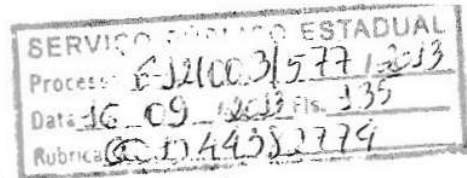 SERVIÇO PÚBLICO ESTADUAL
Processo E-12/003/577/2013
Data 16 09 2013 Fls. 135
Rubrica ID 44382774